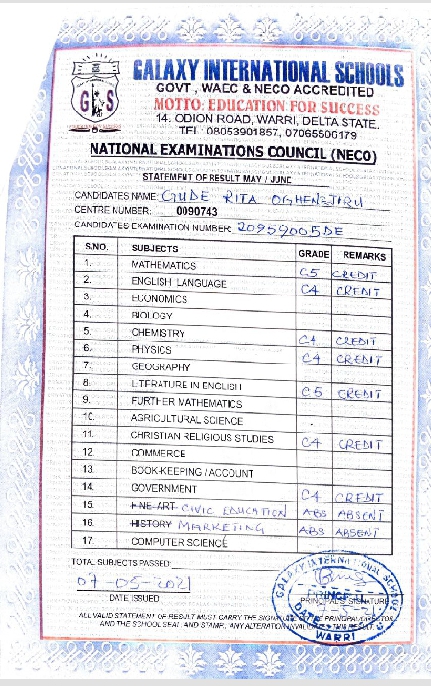 GALAXY INTERNATIONAL SCHOOLS
GOVT, WAEC & NECO ACCREDITED
MOTTO: EDUCATION FOR SUCCESS
14, ODION ROAD, WARRI, DELTA STATE.
TEL: 08053901857, 07065506179
GIS
NATIONAL EXAMINATIONS COUNCIL (NECO)
STATEMENT OF RESULT MAY / JUNE
CANDIDATES NAME: GUDE RITA
CENTRE NUMBER: 0090743
CANDIDATES EXAMINATION NUMBER: 20959005DE
S.NO. SUBJECTS GRADE REMARKS
1. MATHEMATICS C5 CREDIT
2. ENGLISH LANGUAGE C4 CREDIT
3. ECONOMICS
4. BIOLOGY
5. CHEMISTRY C4 CREDIT
6. PHYSICS C4 CREDIT
7. GEOGRAPHY
8. LITERATURE IN ENGLISH C5 CREDIT
9. FURTHER MATHEMATICS
10. AGRICULTURAL SCIENCE
11. CHRISTIAN RELIGIOUS STUDIES C4 CREDIT
12. COMMERCE
13. BOOK-KEEPING / ACCOUNT
14. GOVERNMENT C4 CREDIT
15. FINE ART CIVIC EDUCATION ABS ABSENT
16. HISTORY MARKETING ABS ABSENT
17. COMPUTER SCIENCE
TOTAL SUBJECTS PASSED:
07-05-2021
DATE ISSUED
PRINCIPAL'S SIGNATURE
GALAXY INTERNATIONAL SCHOOLS
DATE
WARRI
ALL VALID STATEMENT OF RESULT MUST CARRY THE SIGNATURE OF PRINCIPAL/DIRECTOR
AND THE SCHOOL SEAL AND STAMP, ANY ALTERATION INVALIDATES THIS RESULT